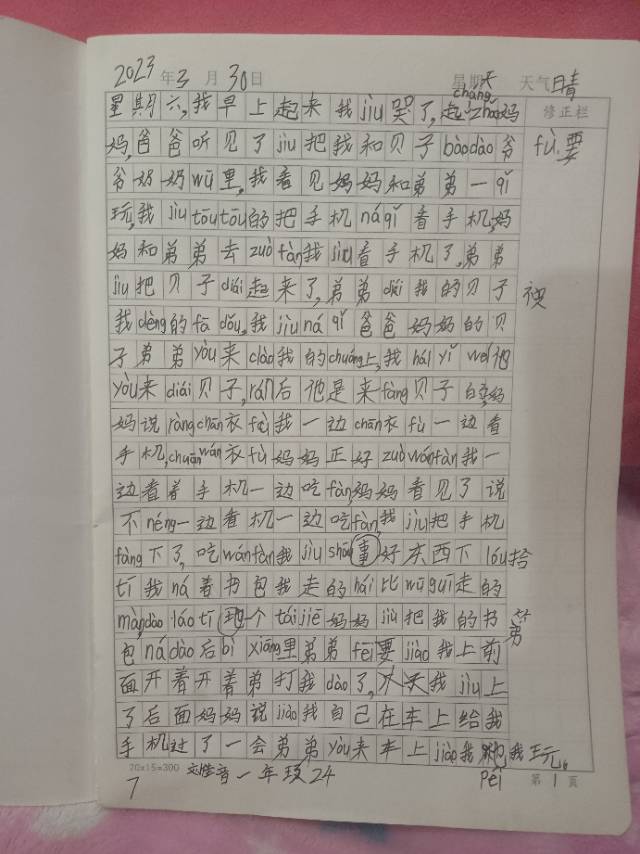 2023年3月30日 星期天 天气晴
chǎng
星期六,我早上起来我jiù哭了,起zhǎo妈 修正栏
妈,爸爸听见了jiù把我和贝子bàodào爷 fù.要
爷奶奶wū里,我看见妈妈和弟弟一qǐ
玩,我jiùtōutōu的把手机náqǐ看手机,妈
妈和弟弟去zuòfàn我jiù看手机了,弟弟
jiù把贝子diái起来了,弟弟diái我的贝子 被
我dèng的fādǒu,我jiùnáqǐ爸爸妈妈的贝
子弟弟yòu来clào我的chuáng上,我háiyǐwei他
yòu来diái贝子,rán后他是来fàng贝子的,妈
妈说ràngchān衣fù我一边chān衣fù一边看
手机,chuānwán衣fù妈妈正好zuòwánfàn我一
边看着手机一边吃fàn,妈妈看见了说
不néng一边看机一边吃fàn,我jiù把手机
fàng下了,吃wánfàn我jiùshōu事好东西下lóu拾
tī我ná着书包我走的hái比wūguī走的
màn,dàoláotī那个táijiē妈妈jiù把我的书
包nádào后bìxiāng里弟弟fēi要jiào我上前 弟
面开着开着弟打我dào了,我jiù上
了后面妈妈说jiào我自己在车上给我
手机过了一会弟弟yòu来车上jiào我我玩。
péi
20x15=300 一年级24 第1页
7